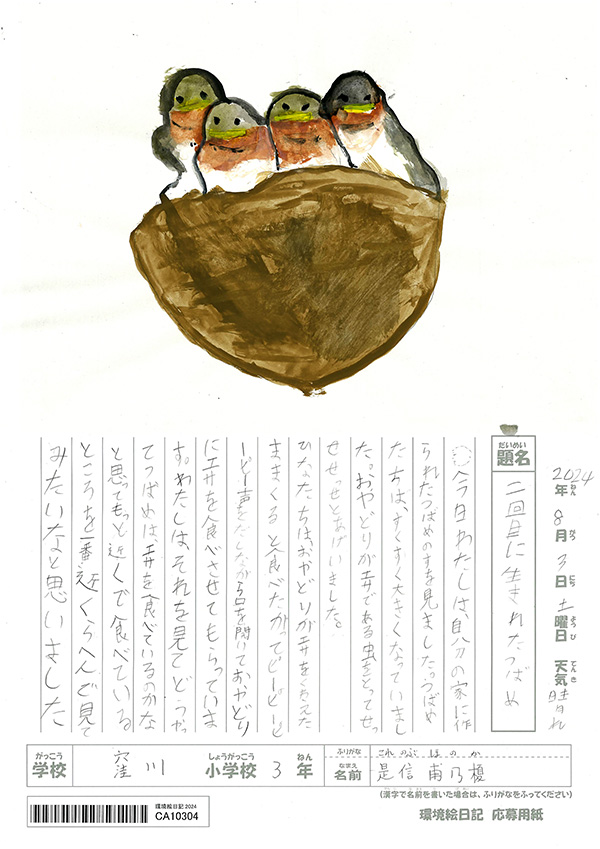 2024年ねん 8月がつ 3日にち 土曜日ようび 天気てんき 晴れ
だいめい
題名 二回目に生まれたつばめ
今日わたしは、自分の家に作
られたつばめのすを見ました。つばめ
たちは、すくすく大きくなっていまし
た。おやどりがエサである虫をとってせっ
せせっせとあげいました。
ひなたちは、おやどりがエサをくわえた
ままくると食べたがってピーピーピ
ーピー声をだしながら口を開けておやどり
にエサを食べさせてもらっていま
す。わたしは、それを見てどうやっ
てつばめは、エサを食べているのかな
と思ってもっと近くで食べている
ところを一番近くらへんで見て
みたいなと思いました
がっこう
学校
窪川
しょうがっこう
小学校
3
ねん
年
ふりがな
これのぶ ほのか
なまえ
名前
是信 甫乃榎
(漢字で名前を書いた場合は、ふりがなをふってください)
環境絵日記 2024
CA10304
環境絵日記 応募用紙